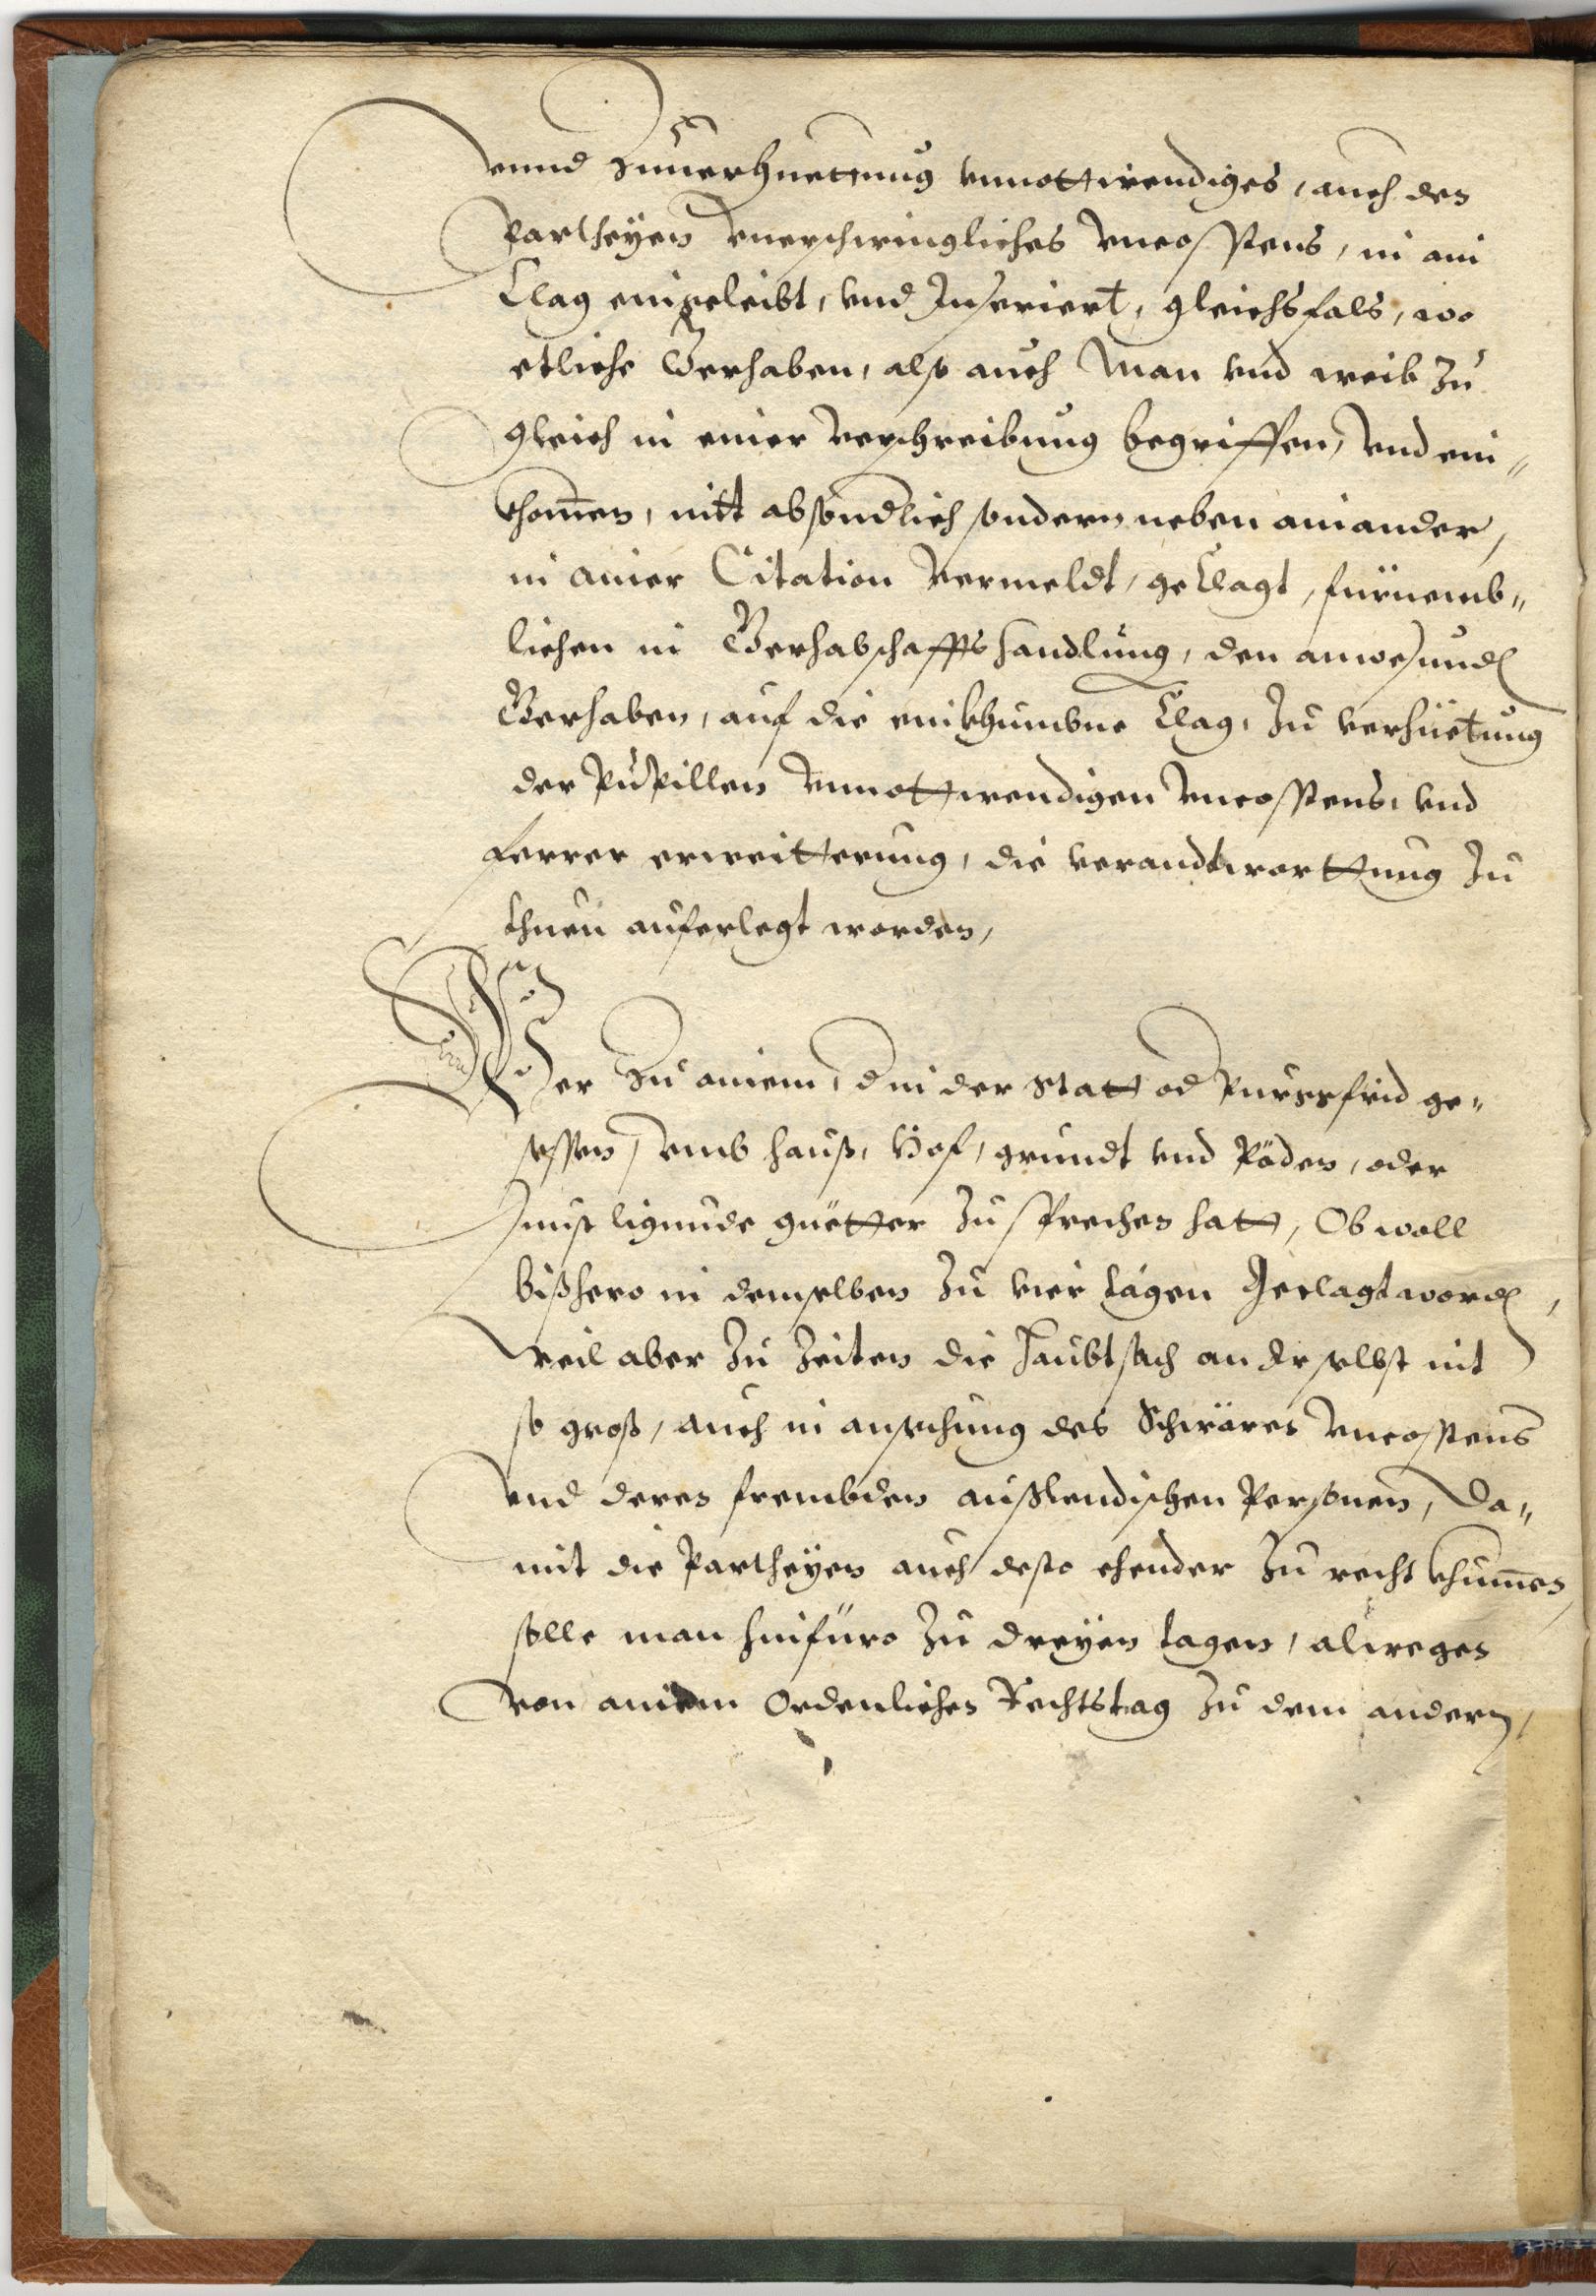 vnnd Zuuerhuettung vnnottwendiges, auch den
Partheyen vnerschwingliches vncosstens, in ain
Clag eingeleibt, vnd Inseriert, gleichsfals, wo
etliche Gerhaben, also auch Man vnd weib Zu
gleich in einer verschreibung begriffen, vnd ein„
khomen, nitt absondlich sondern neben ainander,
in ainer Citation vermeldt, geclagt, fürnemb„
lichen in Gerhabschaffts handlung, den anwesund
Gerhaben, auf die einkhumbne Clag, Zu verhüetung
der Pupillen vnnottwendigen vncosstens, vnd
ferrer erweitterung, die verandtworttung Zu
thuen auferlegt worden,
Wer Zu ainem, d in der Statt od Purkfrid ge„
sessen, vmb hauß, Hof, grundt vnd Pöden, oder
sunst ligunde guetter Zu sprechen hatt, Ob woll
bißhero in demselben Zu vier tägen Geclagt word,
weil aber Zu Zeiten die Haubtsach an Ir selbst nit
so groß, auch in ansechung des Schwären vncosstens
vnd deren frembden außlendischen Personen, Da„
mit die Partheyen auch desto ehender Zu recht khumen,
solle man hinfüro Zu dreyen tagen, alweges
von ainem Ordenlichen Rechtstag Zu dem andern,